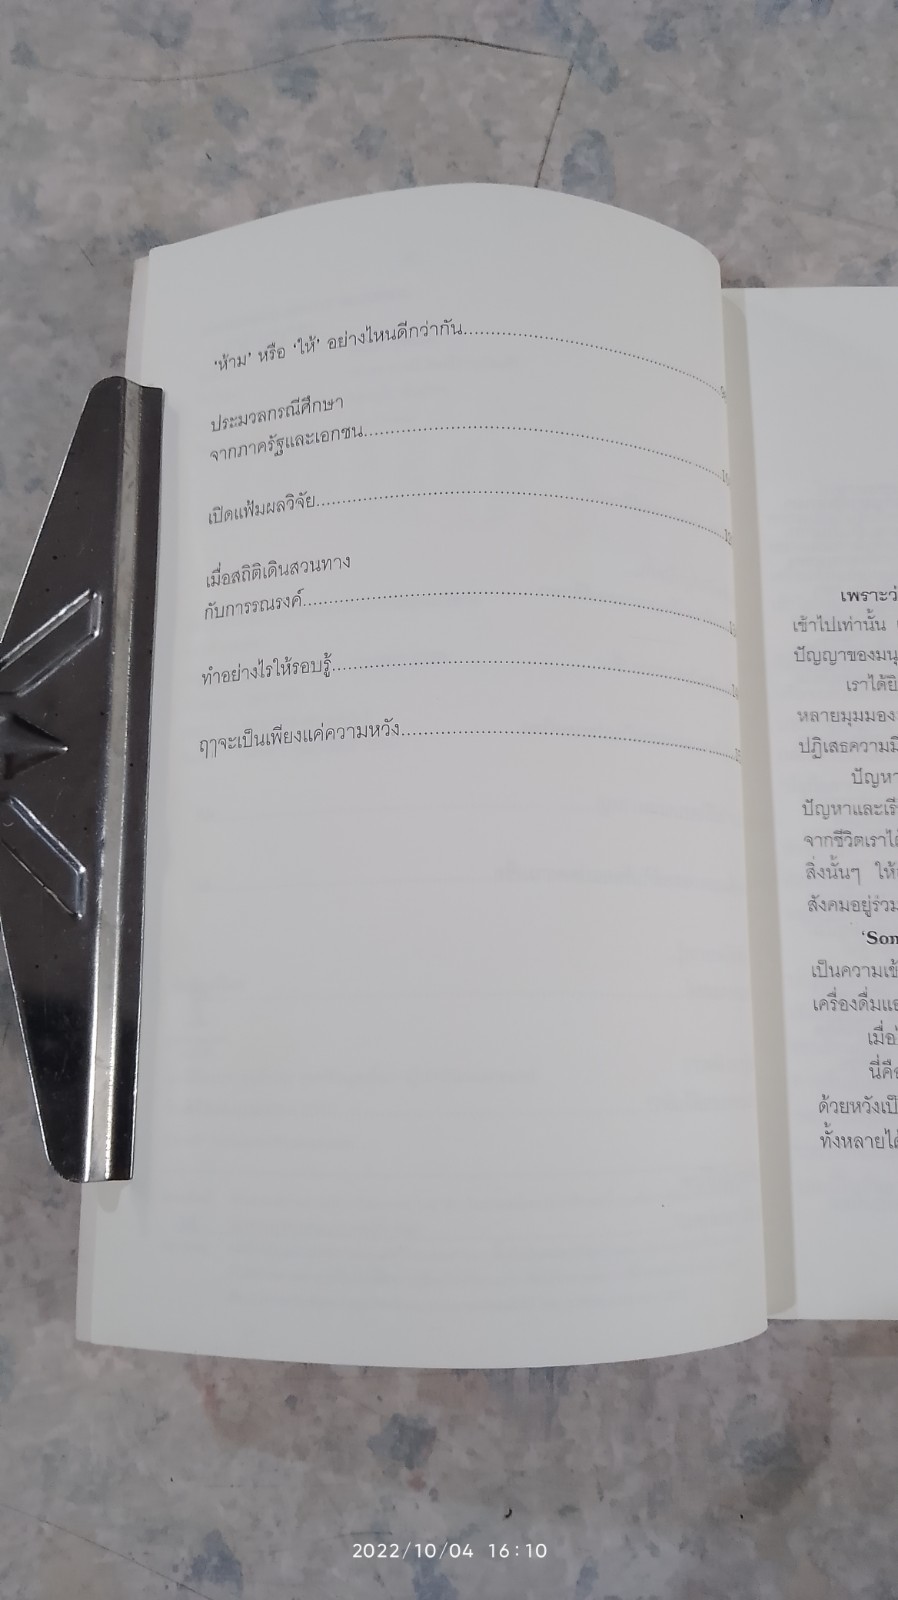 'ห้าม' หรือ 'ให้' อย่างไหนดีกว่ากัน
ประมวลกรณีศึกษา
จากภาครัฐและเอกชน
เปิดแฟ้มผลวิจัย
เมื่อสถิติเดินสวนทาง
กับการรณรงค์
ทำอย่างไรให้รอบรู้
ฤๅจะเป็นเพียงแค่ความหวัง
เข้าไปเท่านั้น
ปัญญาของ
เราได้
หลายมุมมอง
ปฏิเสธความ
ปัญหา
ปัญหาและ
จากชีวิตเรา
สิ่งนั้นๆ
สังคมอยู่ร่วม
เป็นความ
เครื่องดื่ม
เมื่อ
ด้วยหวัง
ทั้งหลาย
2022/10/04 16:10